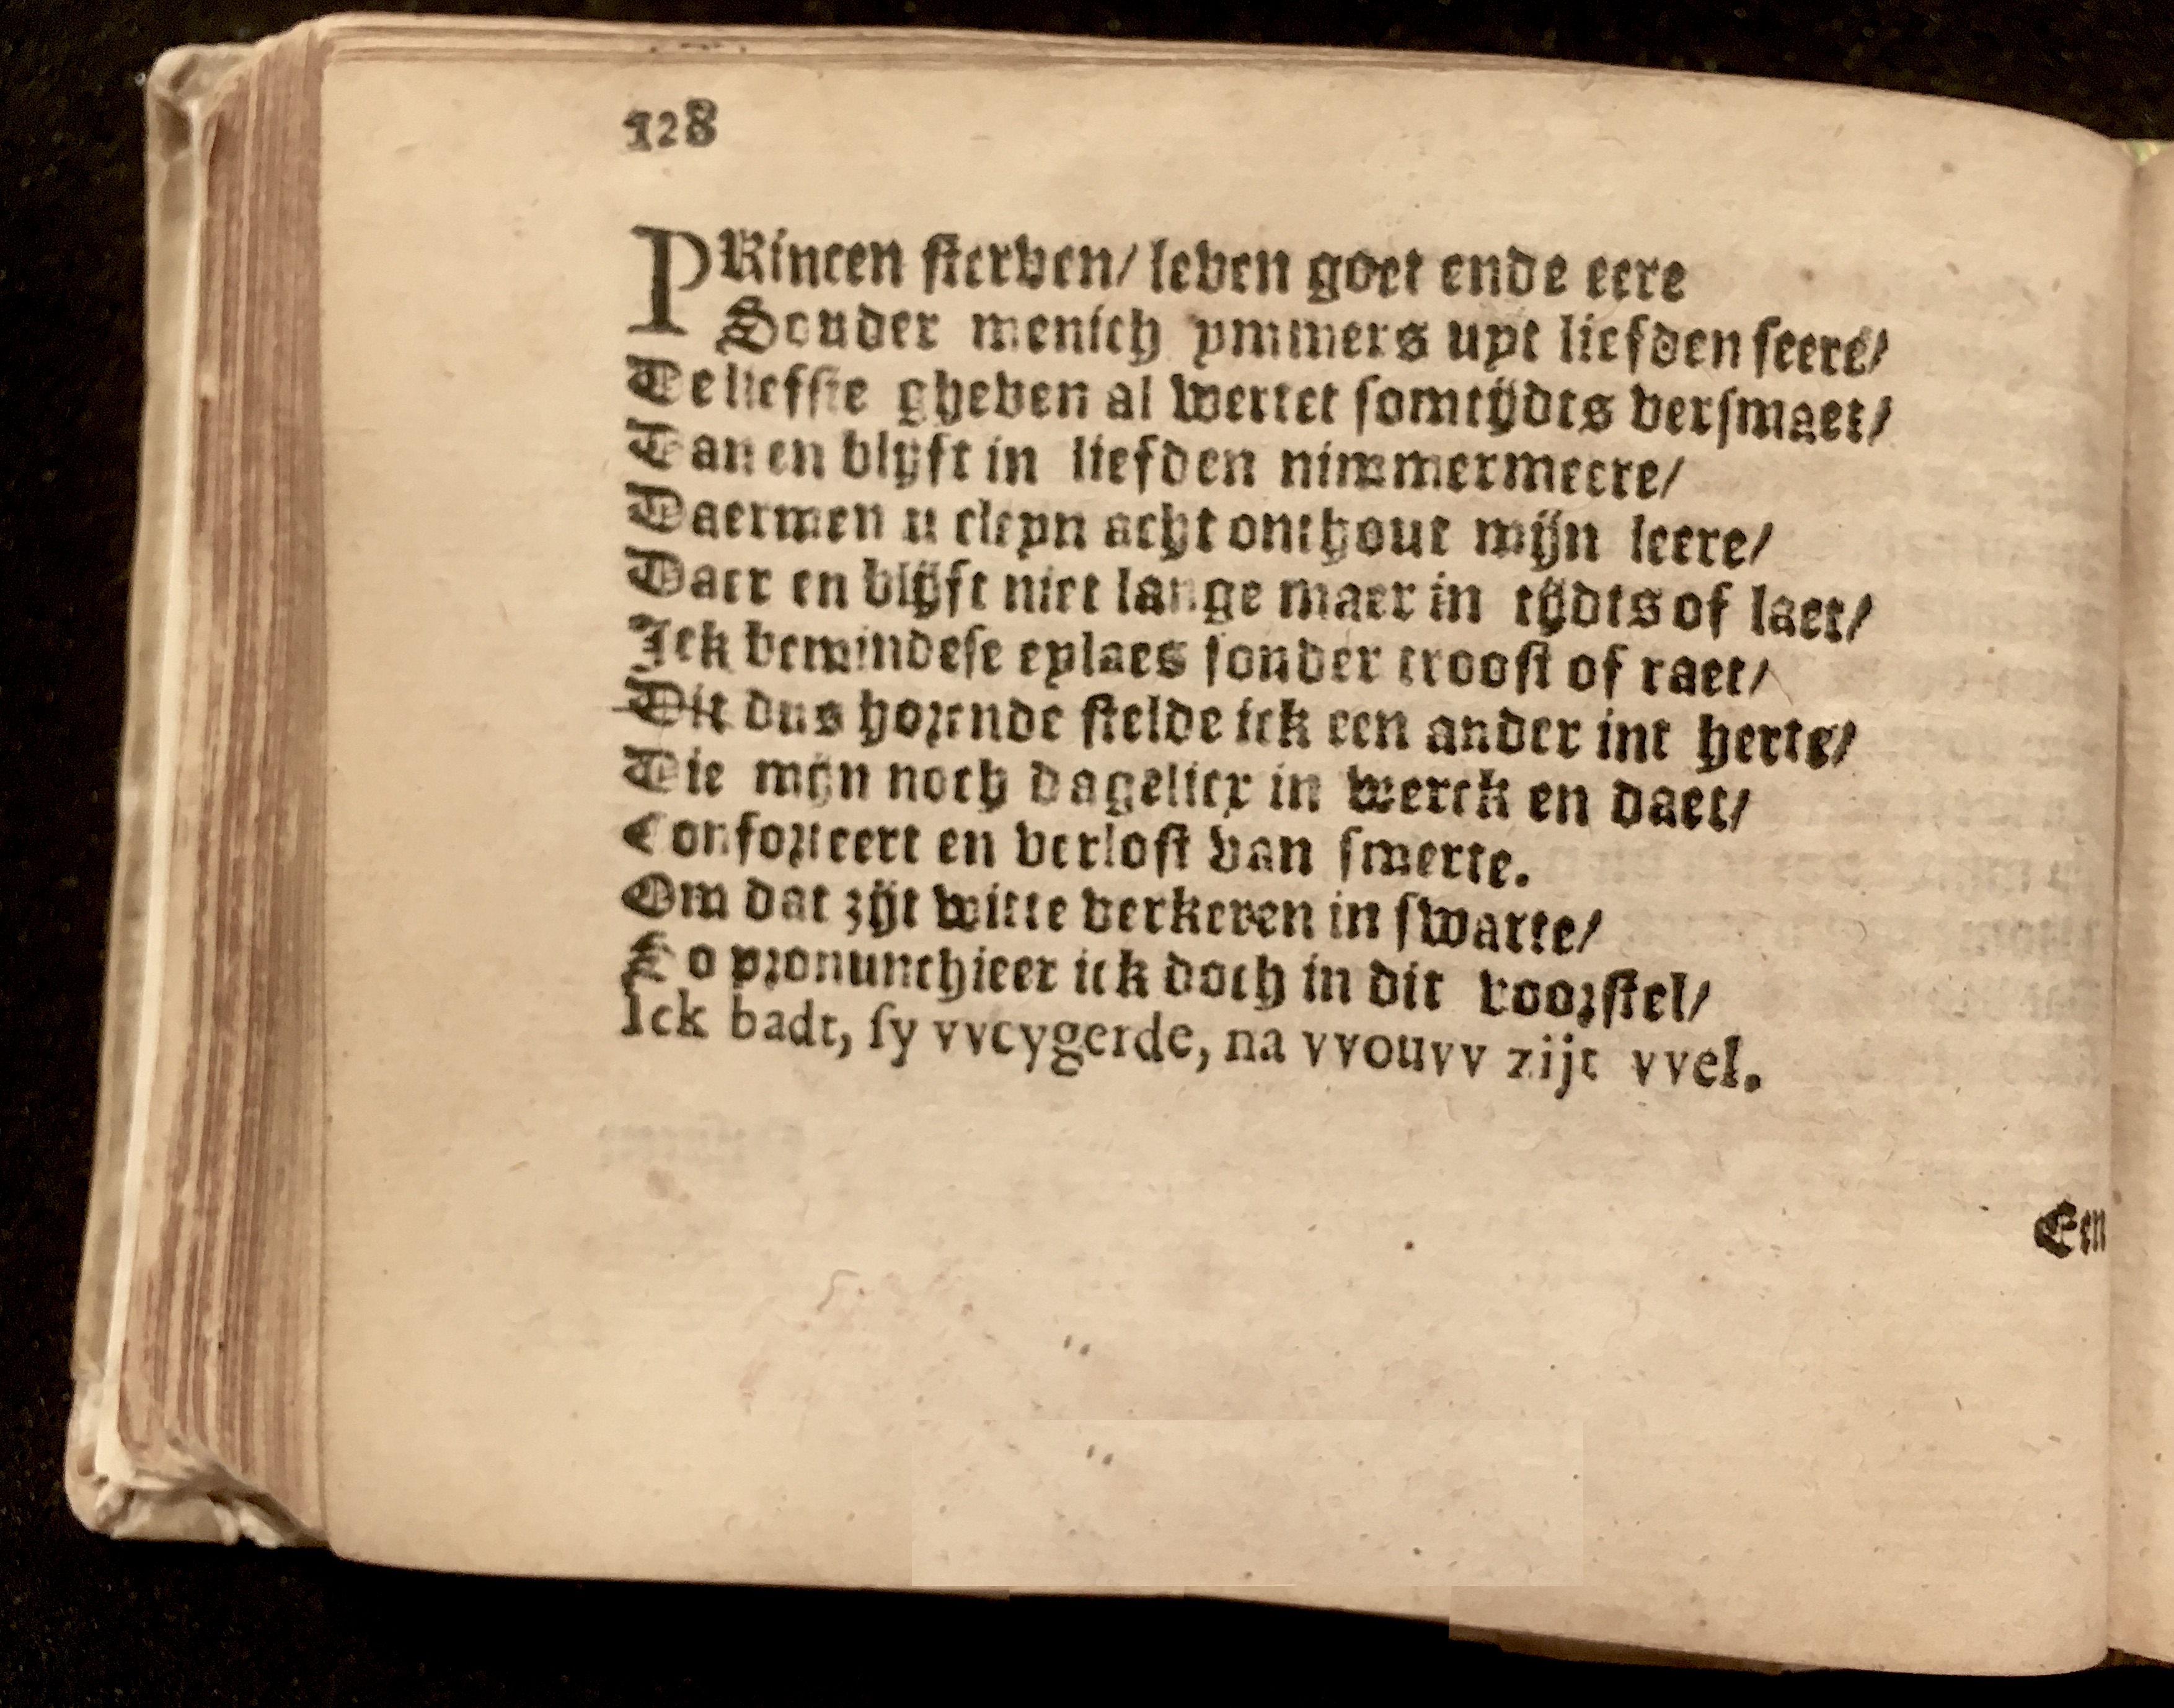 128
PRincen sterven/ leven goet ende eere
Souder menich ymmers uyt liefden seere/
De liefste gheven al wertet somtijdts versmaet/
Dan en blijft in liefden nimmermeere/
Daermen u cleyn acht onthout mijn leere/
Daer en blijft niet lange maer in tijdts of laet/
Ick bemindese eylaes sonder troost of raet/
Dit dus horende stelde ick een ander int herte/
Die mijn noch dagelicx in werck en daet/
Conforteert en verlost van smerte.
Om dat zijt witte verkeren in swarte/
So pronunchieer ick doch in dit voorstel/
Ick badt, sy vveygerde, na vvouvv zijt vvel.
Een